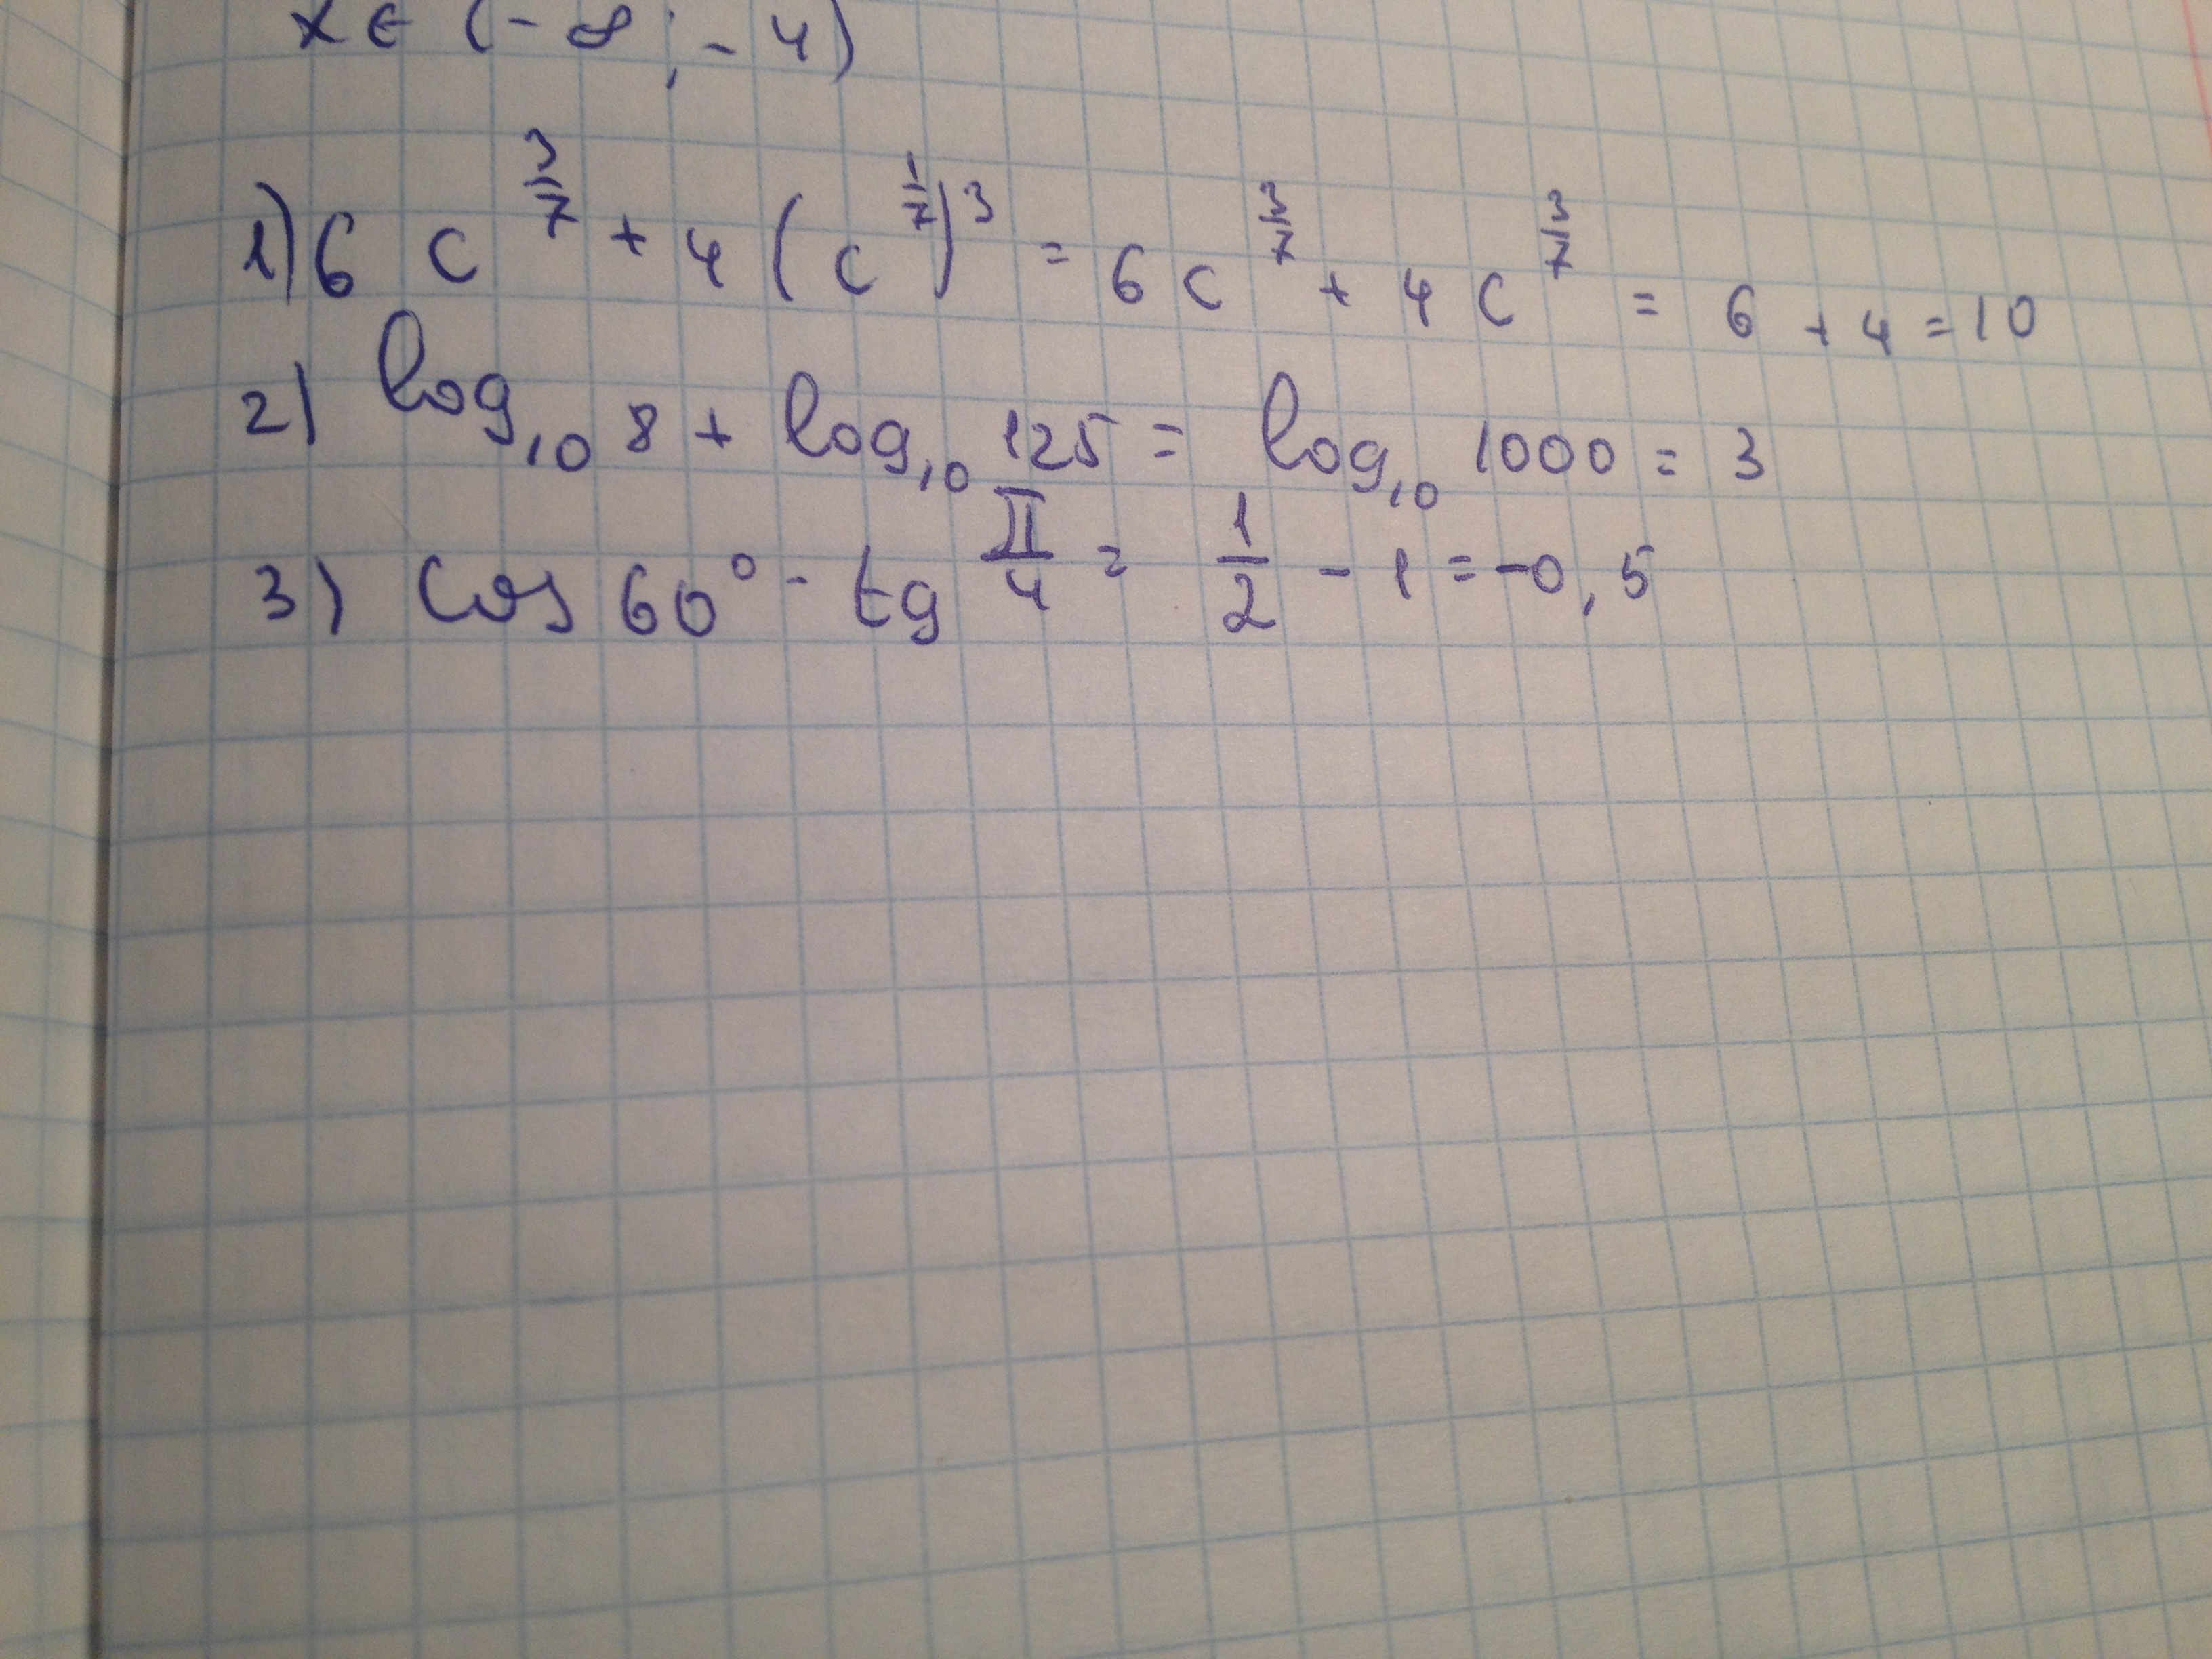 x ∈ (-∞; -4)
1) 6 c^(3/7) + 4 (c^(1/7))^3 = 6 c^(3/7) + 4 c^(3/7) = 6 + 4 = 10
2) log₁₀ 8 + log₁₀ 125 = log₁₀ 1000 = 3
3) cos 60° - tg π/4 = 1/2 - 1 = -0,5